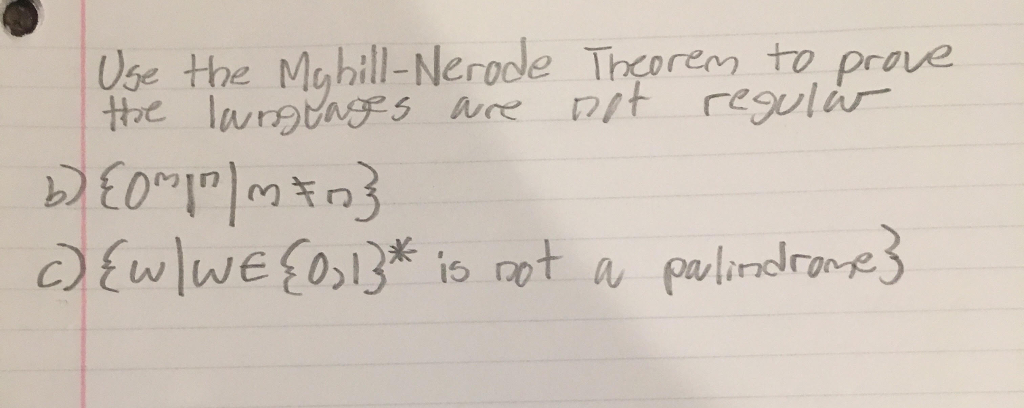 Use the Myhill-Nerode Theorem to prove
the languages are not regular
b) {0ᵐ1ⁿ|m≠n}
c) {w|w∈{0,1}* is not a palindrome}